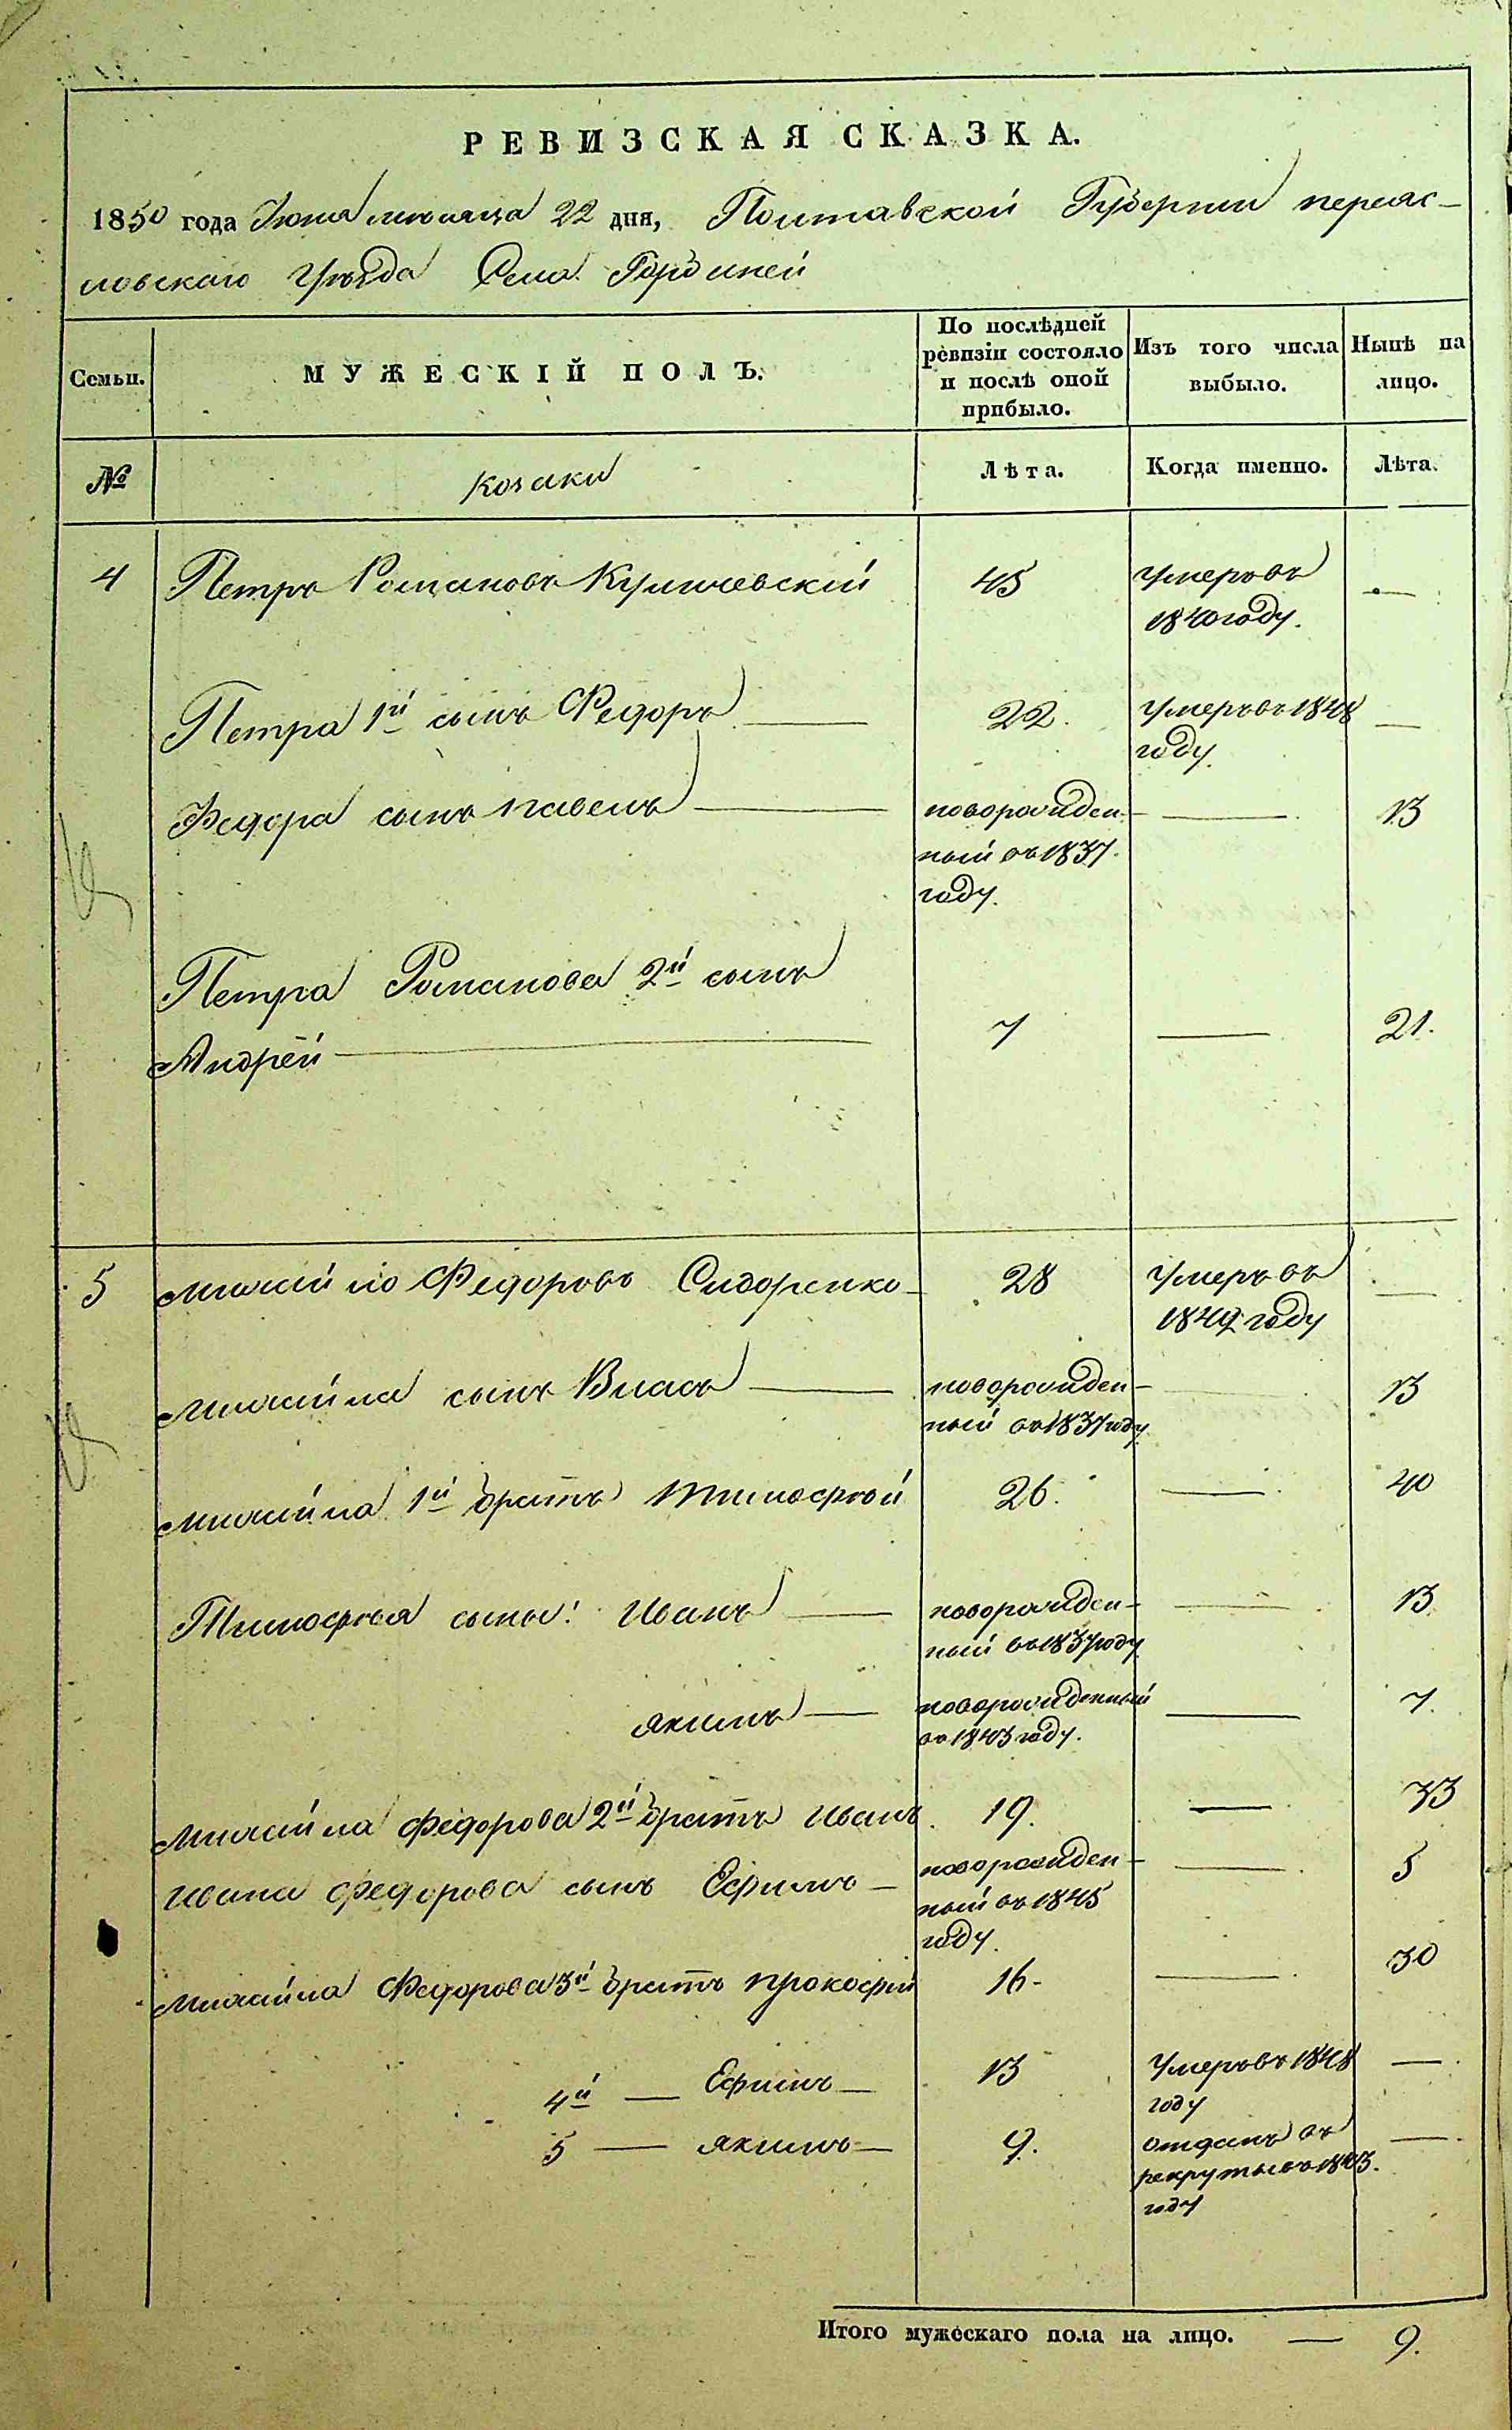 РЕВИЗСКАЯ СКАЗКА.
1850 года Июня месяца 22 дня, Полтавской Губернии переяс-
ловскаго Уѣзда Села
Семьи.
МУЖЕСКІЙ ПОЛЪ.
По послѣдней ревизіи состояло и послѣ оной прибыло.
Изъ того числа выбыло.
Нынѣ на лицо.
№
козаки
Лѣта.
Когда именно.
Лѣта.
4 Петръ Романовъ 45 умеръ въ —
1840 году.
Петра 1й сынъ Федоръ — 22. умеръ въ 1848 —
году.
Федора сынъ павелъ — новорожден- — 13
ный въ 1837
году.
Петра Романова 2й сынъ
Андрей — 7 — 21.
5 михайло Федоровъ Сидоренко — 28 умеръ въ —
1849 году
михайла сынъ Власъ — новорожден- — 13
ный въ 1837 году
михайла 1й братъ тимофей 26. — 40
Тимофея сыны: иванъ — новорожден- — 13
ный въ 1837 году
якимъ — новорожденный — 7.
въ 1843 году.
михайла федорова 2й братъ иванъ 19. — 33
ивана федорова сынъ Ефимъ — новорожден- — 5
ный въ 1845
году.
михайла Федорова 3й братъ прокофій 16 - — 30
4й — Ефимъ — 13 умеръ въ 1848 —
году
5 — якимъ — 9. отданъ въ —
рекруты въ 1843.
году
Итого мужескаго пола на лицо. — 9.